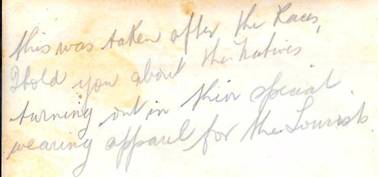 this was taken after the Races,
I told you about the Natives
turning out in their special
wearing apparel for the Tourists.